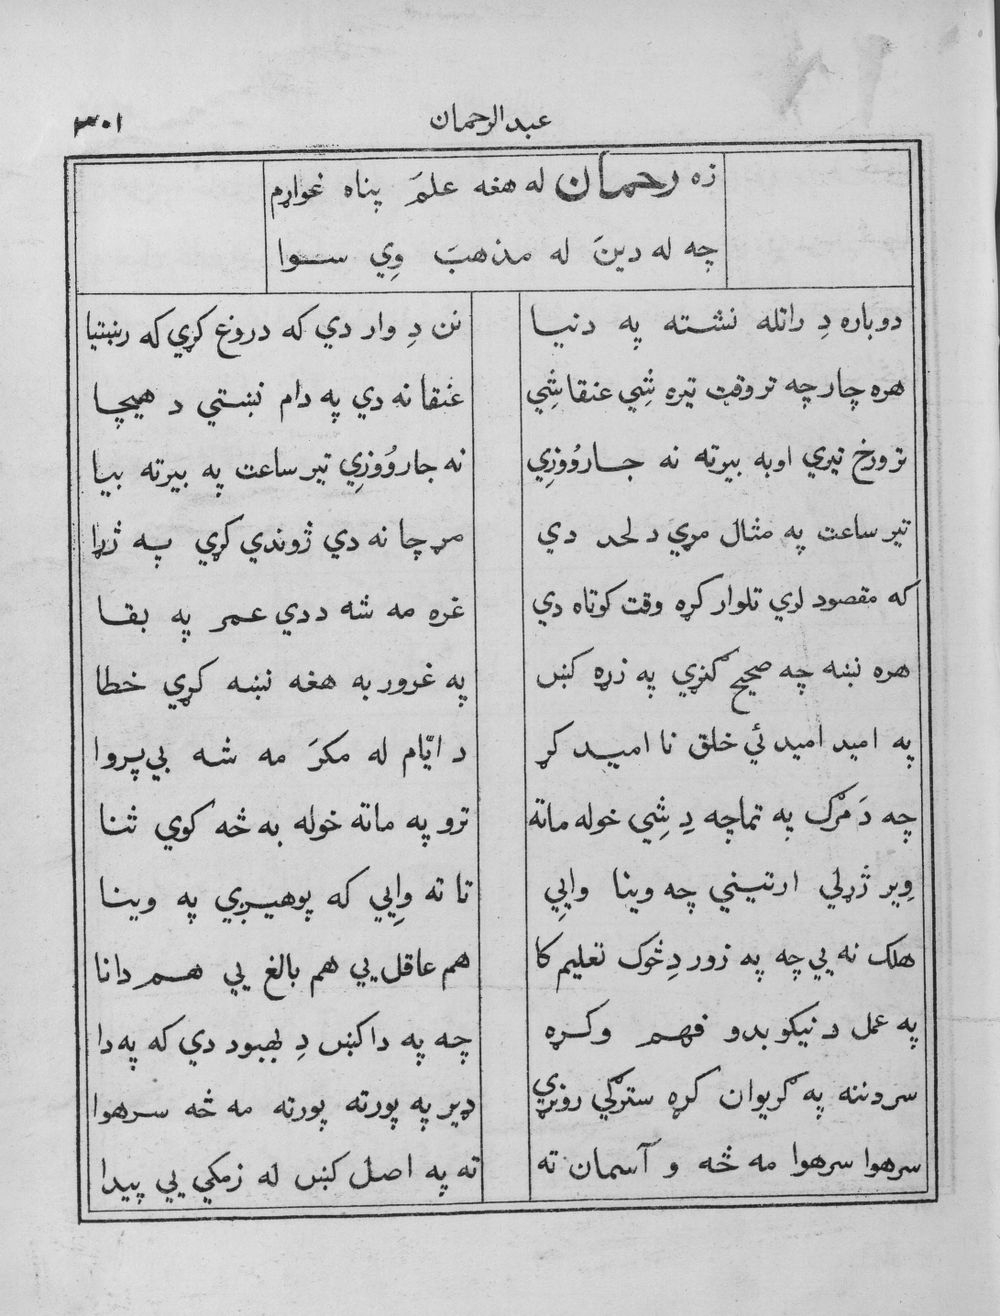 عبدالرحمان
۳۰۱
زه رحمان له هغه علمَ پناه غواړم
چه له دینَ له مذهبَ وِي سوا
دوباره دِ راتله نشته په دنیا
نن دِ وار دي که دروغ کړي که رښتیا
هره چار چه تر وقت تیره شِي عنقا شِي
عنقا نه دي په دام نښتي د هیچا
تر ورخ تیري اوبه بیرته نه جاروُوزِي
نه جاروُوزِي تیر ساعت په بیرته بیا
تیر ساعت په مثال مړي د لحد دي
مړ چا نه دي ژوندي کړي په ژړا
که مقصود لري تلوار کړه وقت کوتاه دي
غره مه شه د دي عمر په بقا
هره نښه چه صحیح ګڼړي په زړه کښ
په غرور به هغه نښه کړي خطا
په امید امید ئي خلق نا امید کړ
د ایّام له مکرَ مه شه بي‌پروا
چه دَ مرګ په تماچه دِ شِي خوله ماته
ترو په ماته خوله به څه کوي ثنا
وِیر ژړلي ارتیني چه وینا وایِي
تا ته وایِي که پوهیږي په وینا
هلک نه یي چه په زور دِ څوک تعلیم کا
هم عاقل یي هم بالغ یي هم دانا
په عمل د نیکو بدو فهم وکړه
چه په دا کښ دِ بهبود دي که په دا
سر دننه په ګریوان کړه سترګي روڼړي
ډیر په پورته پورته مه څه سرهوا
سرهوا سرهوا مه څه و آسمان ته
ته په اصل کښ له زمکي یي پیدا